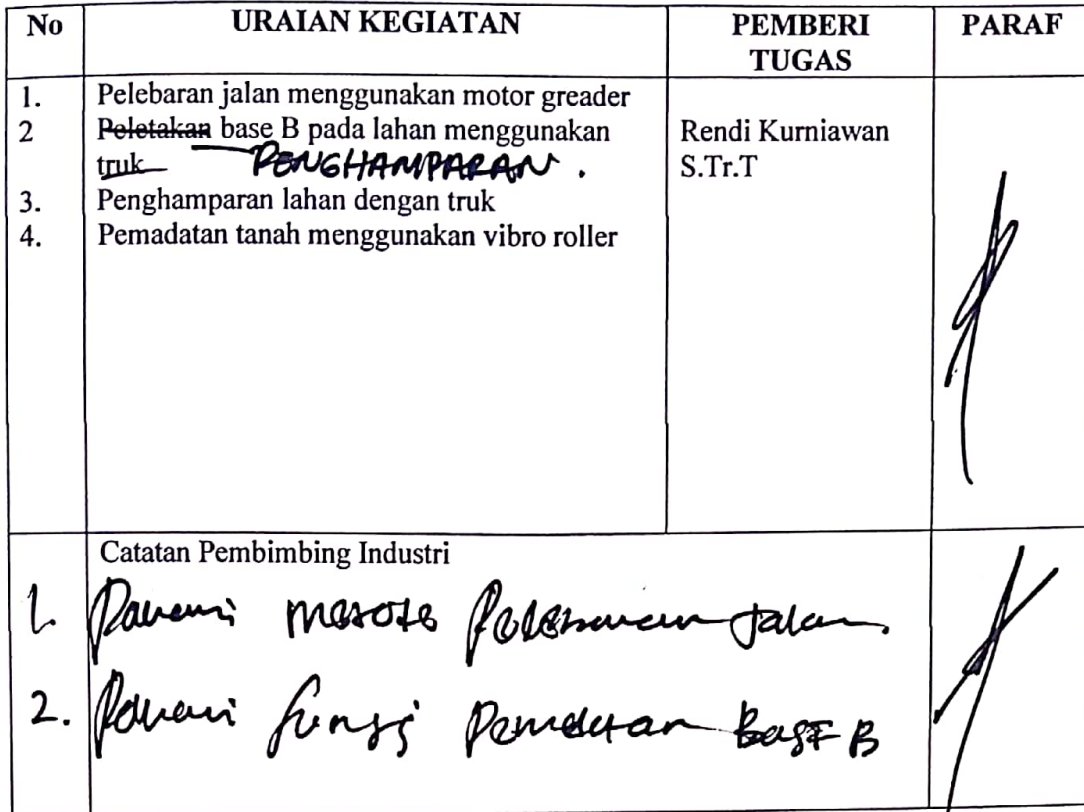 No URAIAN KEGIATAN PEMBERI TUGAS PARAF
1. Pelebaran jalan menggunakan motor greader
2 Peletakan base B pada lahan menggunakan
truk PENGHAMPARAN.
Rendi Kurniawan
S.Tr.T
3. Penghamparan lahan dengan truk
4. Pemadatan tanah menggunakan vibro roller
Catatan Pembimbing Industri
1. Pahami metode Pelebaran Jalan.
2. Pahami fungsi Pemadatan Base B